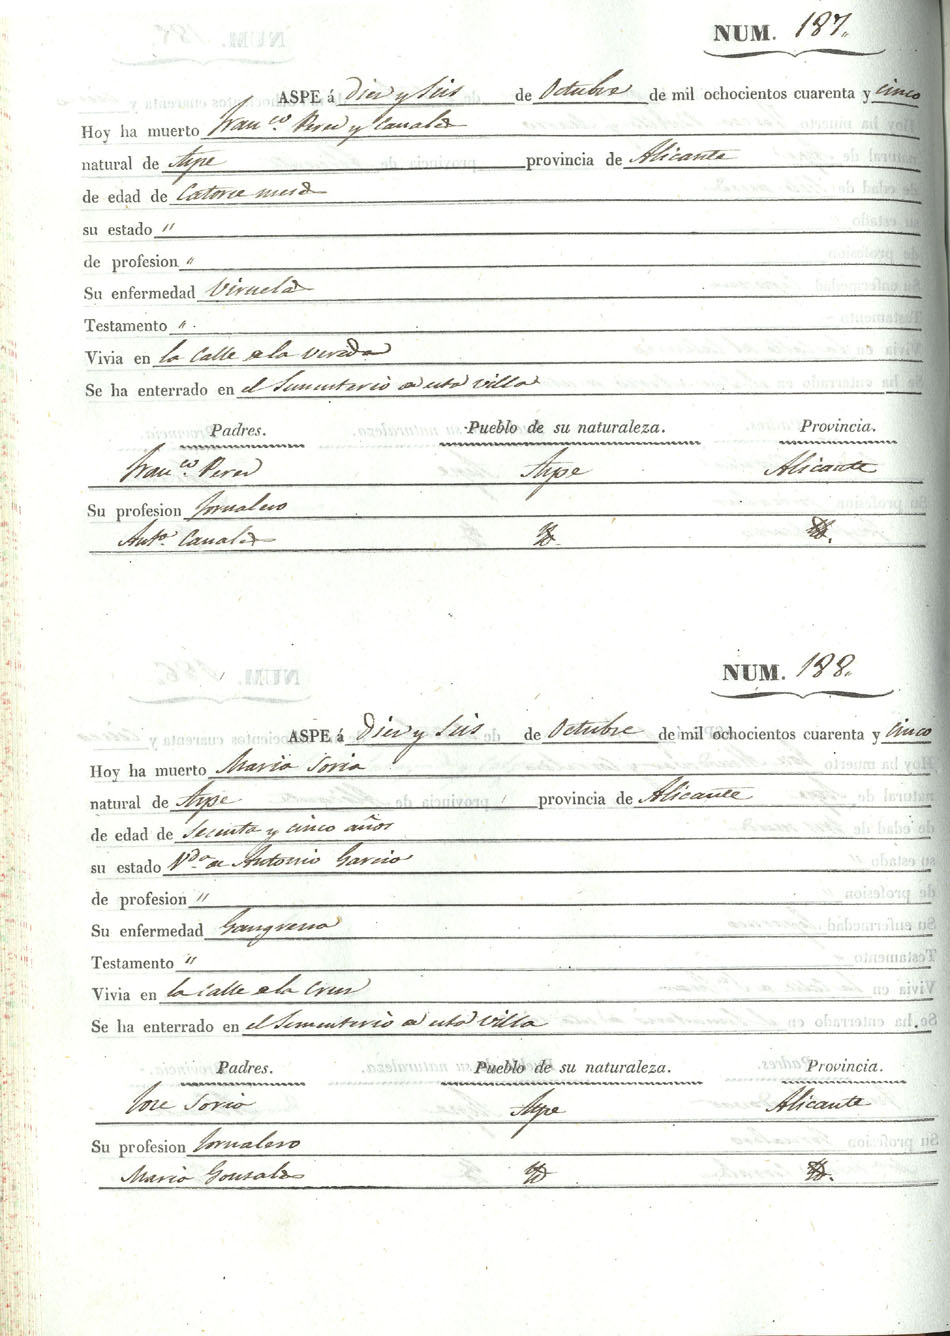 NUM. 187.
ASPE á Diez y Seis de Octubre de mil ochocientos cuarenta y cinco
Hoy ha muerto Franco. Perez y Canals
natural de Aspe provincia de Alicante
de edad de Catorce meses
su estado "
de profesion "
Su enfermedad Viruelas
Testamento "
Vivia en la Calle de la Vereda
Se ha enterrado en el Sementerio de esta Villa
Padres. Pueblo de su naturaleza. Provincia.
Franco. Perez Aspe Alicante
Su profesion Jornalero
Anta. Canals Yd. Yd.
NUM. 188.
ASPE á Diez y Seis de Octubre de mil ochocientos cuarenta y cinco
Hoy ha muerto Maria Soria
natural de Aspe provincia de Alicante
de edad de Sesenta y cinco años
su estado Vda. de Antonio Garcia
de profesion "
Su enfermedad Gangrena
Testamento "
Vivia en la Calle de la Cruz
Se ha enterrado en el Sementerio de esta Villa
Padres. Pueblo de su naturaleza. Provincia.
Jose Soria Aspe Alicante
Su profesion Jornalero
Maria Gonsales Yd. Yd.